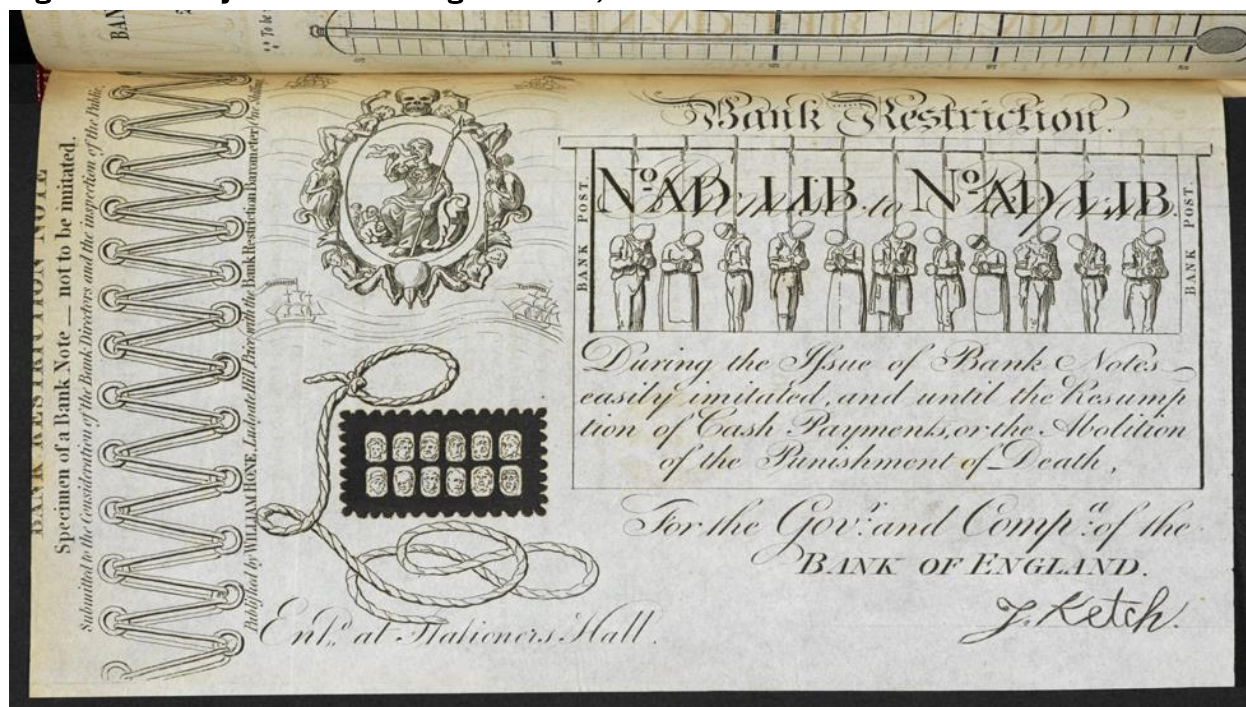 BANK RESTRICTION NOTE
Specimen of a Bank Note — not to be imitated.
Submitted to the Consideration of the Bank Directors and the inspection of the Public.
Published by WILLIAM HONE, Ludgate Hill Price with the Bank Restriction Barometer One Shilling
BAN
** To be
Bank Restriction.
BANK POST.
No. AD LIB. No. AD LIB.
to
BANK POST.
During the Issue of Bank Notes
easily imitated, and until the Resump
tion of Cash Payments, or the Abolition
of the Punishment of Death,
For the Govr. and Compa. of the
BANK OF ENGLAND.
J. Ketch.
Entd. at Stationers Hall.